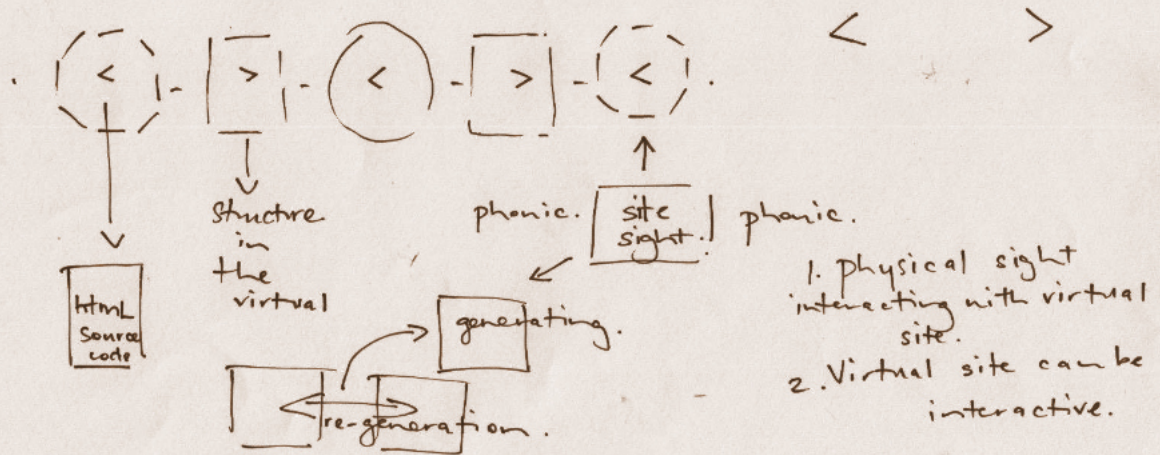 < > < > < < >
structure
in
the
virtual
phonic. site phonic.
sight.
html
source
code
generating.
re-generation.
1. physical sight
interacting with virtual
site.
2. Virtual site can be
interactive.